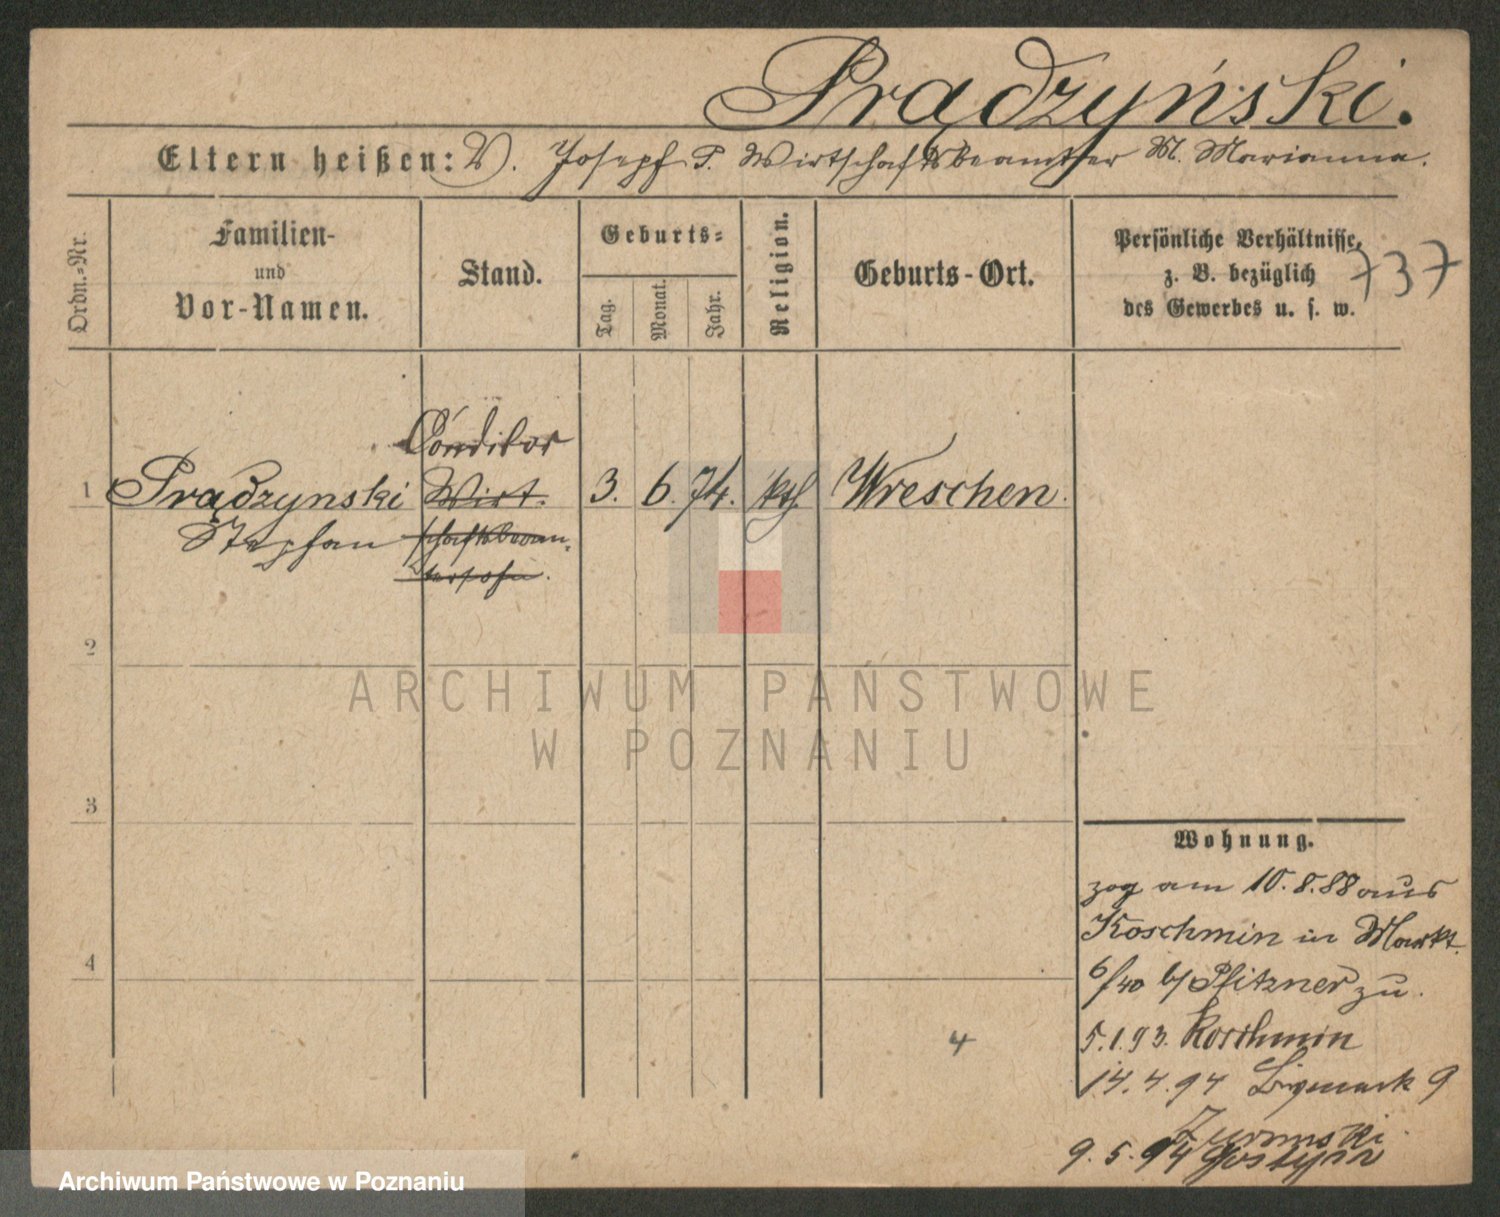 Prądzyński.
Eltern heißen: V. Josepf P. Wirtschaftsbeamter M. Marianna.
Ordn.=Nr.
Familien-
und
Vor-Namen.
Stand.
Geburts=
Tag.
Monat.
Jahr.
Religion.
Geburts-Ort.
Persönliche Verhältnisse,
z. B. bezüglich
des Gewerbes u. s. w.
737
Conditor
1 Prądzynski Wirt- 3. 6. 74. kth. Wreschen.
Stepfan schaftsbeam-
tersohn.
2
ARCHIWUM PAŃSTWOWE
W POZNANIU
3
Wohnung.
zog am 10.8.88 aus
Koschmin in Markt.
4
6/40 b/ Pfitzner zu.
4
5.1.93. Koschmin
14.4.94 Bismark 9
Zuromski.
9.5.94 Gostyn
Archiwum Państwowe w Poznaniu